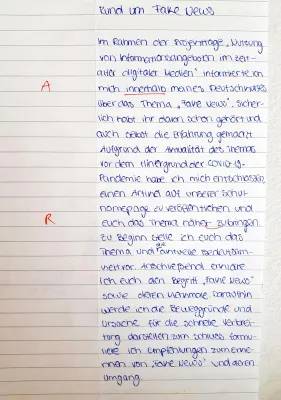 Rund um Fake News
Im Rahmen der Projekttage „Nutzung
von Informationsangeboten im Zeit-
alter digitaler Medien" informierte ich
A mich innerhalb meines Deutschkurses
über das Thema „Fake News". Sicher-
lich habt ihr davon schon gehört und
auch selbst die Erfahrung gemacht.
Aufgrund der Aktualität des Themas
vor dem Hintergrund der COVID-19-
Pandemie habe ich mich entschlossen,
einen Artikel auf unserer Schul-
homepage zu veröffentlichen und
R euch das Thema näher zubringen.
Zu Beginn stelle ich euch das
Thema und die aktuelle
vor. Anschließend erkläre
ich euch den Begriff „Fake News"
sowie deren Merkmale. Daraufhin
werde ich die Beweggründe und
Ursache für die schnelle Verbrei-
tung darstellen. Zum Schluss formu-
liere ich Empfehlungen zum Erken-
nen von „Fake News" und deren
Umgang.